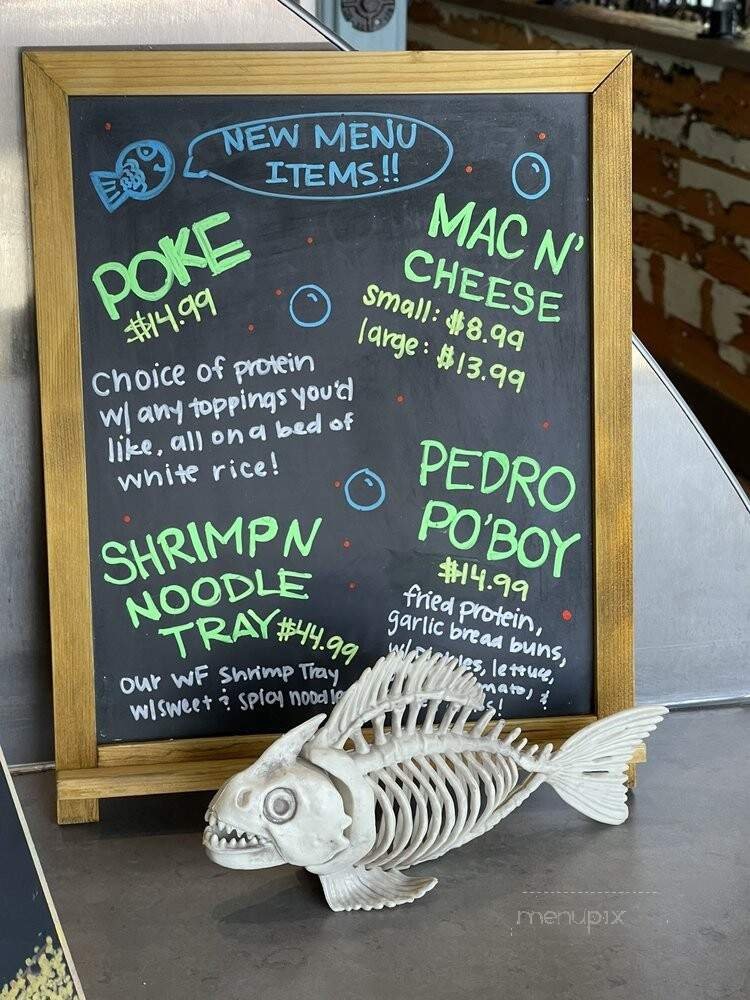 NEW MENU
ITEMS!!
POKE
$14.99
Choice of protein
w/ any toppings you'd
like, all on a bed of
white rice!
MAC N'
CHEESE
small: $8.99
large: $13.99
SHRIMP N
NOODLE
TRAY $44.99
our WF Shrimp Tray
w/sweet & spicy
PEDRO
PO'BOY
$14.99
fried protein,
garlic bread buns,
w/ pickles, lettuce,
menupix